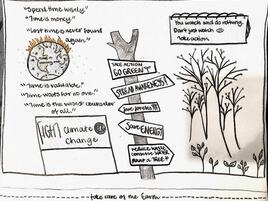 "Spend time wisely."
"Time is money."
"Lost time is never found
again."
"Time is valuable."
"Time waits for no one."
"Time is the wisest counselor
of all."
Climate
change
TAKE ACTION
GO GREEN
SPREAD AWARENESS!
Save forests!!!
Save ENERGY
reduce waste
conserve water
PLANT A TREE
You watch and do nothing.
Don't just watch
Take action.
take care of the Earth